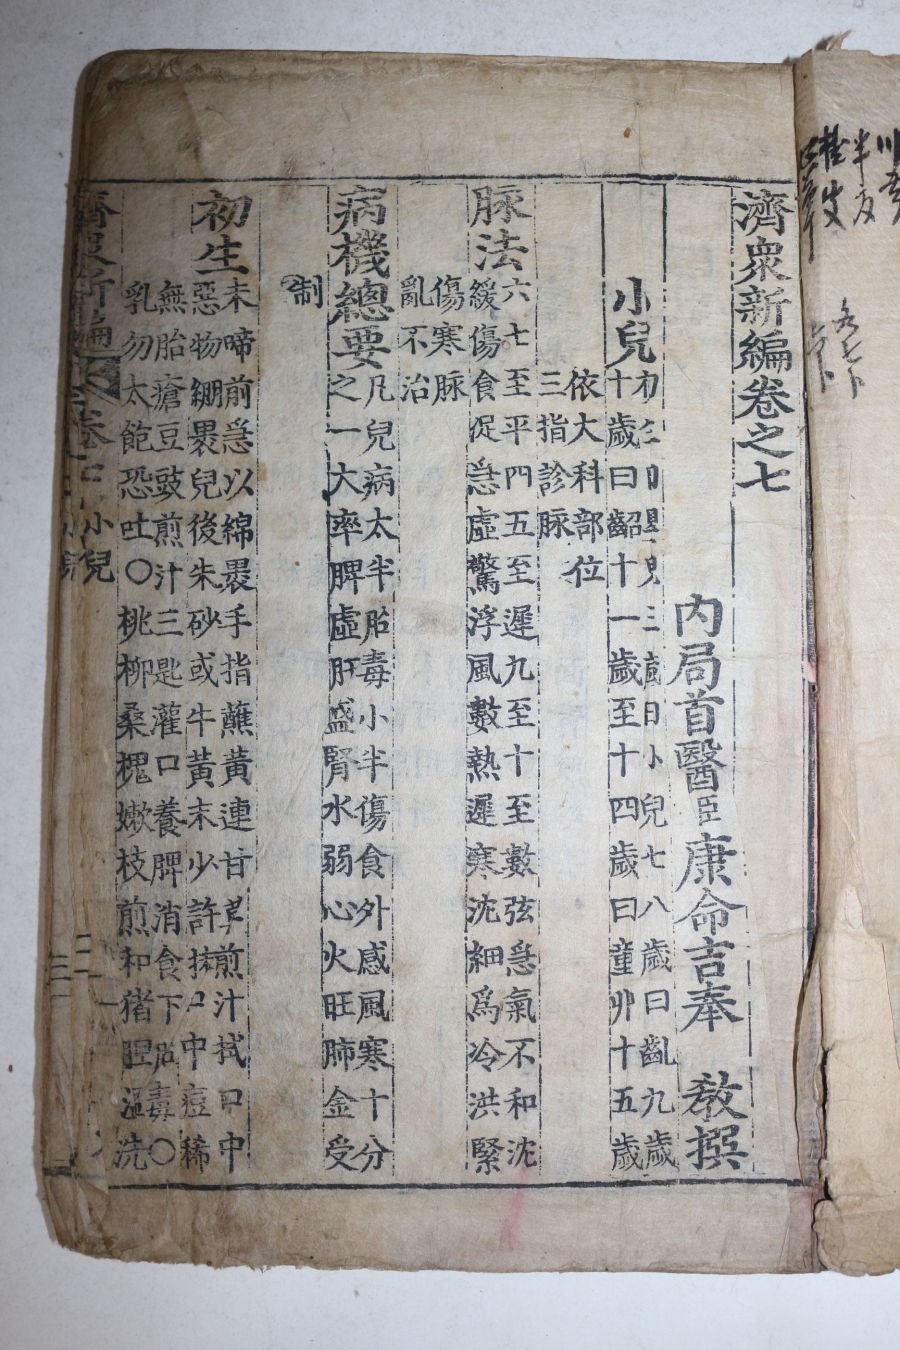 濟衆新編卷之七
內局首醫臣康命吉奉 敎撰
小兒
三歲曰小兒七八歲曰齔九歲
十歲曰齠十一歲至十四歲曰童丱十五歲
依大科部位
三指診脉
脉法
六七至平四五至遲九至十至數弦急氣不和沈
緩傷食促急虛驚浮風數熱遲寒沈細爲冷洪緊
傷寒脉
亂不治
病機總要
凡兒病太半胎毒小半傷食外感風寒十分
之一大率脾虛肝盛腎水弱心火旺肺金受
制
初生
未啼前急以綿褁手指蘸黃連甘草煎汁拭口中
惡物綳褁兒後朱砂或牛黃末少許抹口中痘稀
無胎瘡豆豉煎汁三匙灌口養脾消食下胎毒〇
乳勿太飽恐吐〇桃柳桑槐嫩枝煎和猪膽溫洗
濟衆新編 卷七 小兒